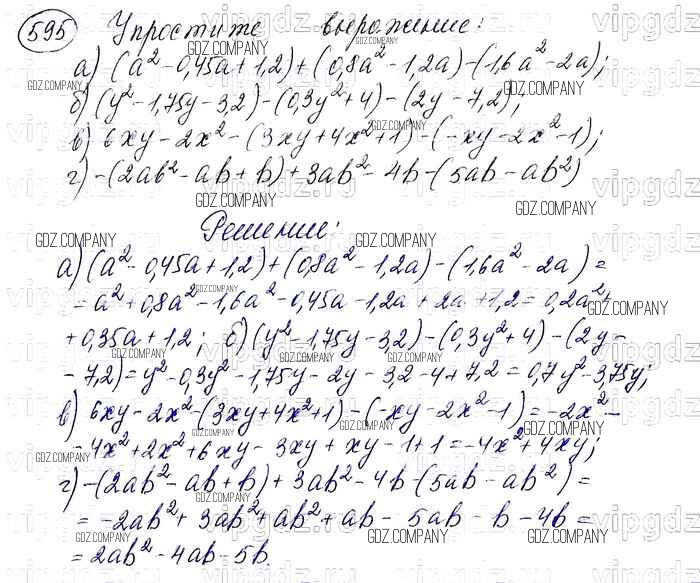 595 Упростите выражение:
а) (a² - 0,45a + 1,2) + (0,8a² - 1,2a) - (1,6a² - 2a);
б) (y² - 1,75y - 3,2) - (0,3y² + 4) - (2y - 7,2);
в) 6xy - 2x² - (3xy + 4x² + 1) - (-xy - 2x² - 1);
г) -(2ab² - ab + b) + 3ab² - 4b - (5ab - ab²)
Решение:
а) (a² - 0,45a + 1,2) + (0,8a² - 1,2a) - (1,6a² - 2a) =
= a² + 0,8a² - 1,6a² - 0,45a - 1,2a + 2a + 1,2 = 0,2a² +
+ 0,35a + 1,2; б) (y² - 1,75y - 3,2) - (0,3y² + 4) - (2y -
- 7,2) = y² - 0,3y² - 1,75y - 2y - 3,2 - 4 + 7,2 = 0,7y² - 3,75y;
в) 6xy - 2x² - (3xy + 4x² + 1) - (-xy - 2x² - 1) = -2x² -
- 4x² + 2x² + 6xy - 3xy + xy - 1 + 1 = -4x² + 4xy;
г) -(2ab² - ab + b) + 3ab² - 4b - (5ab - ab²) =
= -2ab² + 3ab² + ab² + ab - 5ab - b - 4b =
= 2ab² - 4ab - 5b.
GDZ.COMPANY
vipgdz